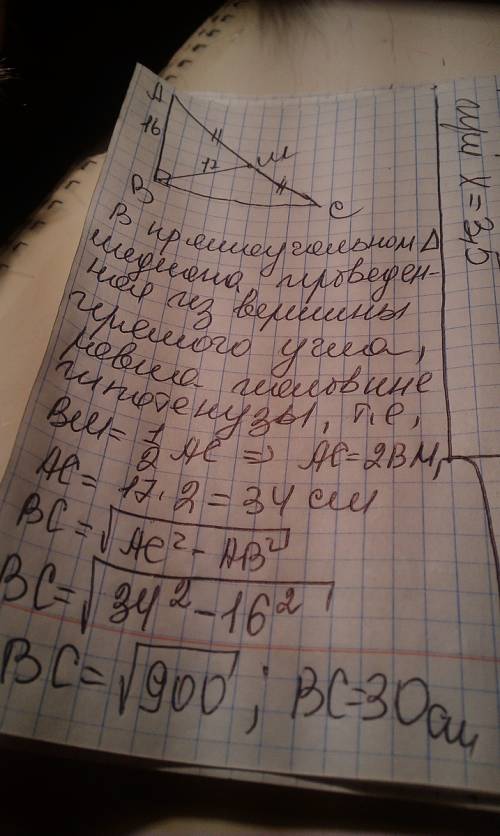 A
16
17
M
B
C
В прямоугольном Δ
медиана проведен-
ная из вершины
прямого угла,
равна половине
гипотенузы, т.е.,
BM = 1/2 AC ⇒ AC = 2BM,
AC = 17·2 = 34 см
BC = √AC² - AB²
BC = √34² - 16²
BC = √900 ; BC = 30 см
при x = 3,5